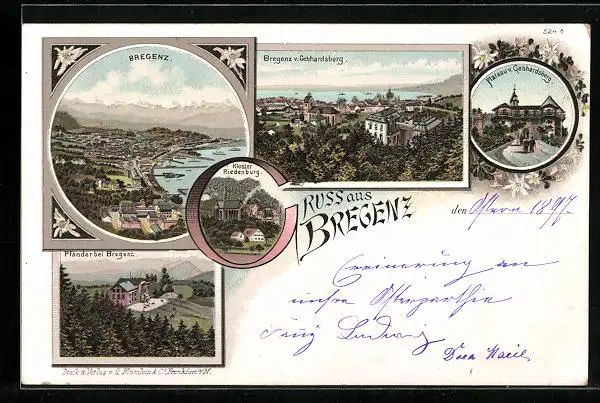 524
BREGENZ.
Bregenz v. Gebhardsberg.
Plateau v. Gebhardsberg.
Kloster
Riedenburg.
GRUSS aus
BREGENZ
den Ostern 1897.
Pfänder bei Bregenz.
Erinerung an
unsre Osterparthie
Ludwig
Druck u. Verlag v. G. Blümlein & Co. Frankfurt a/M.